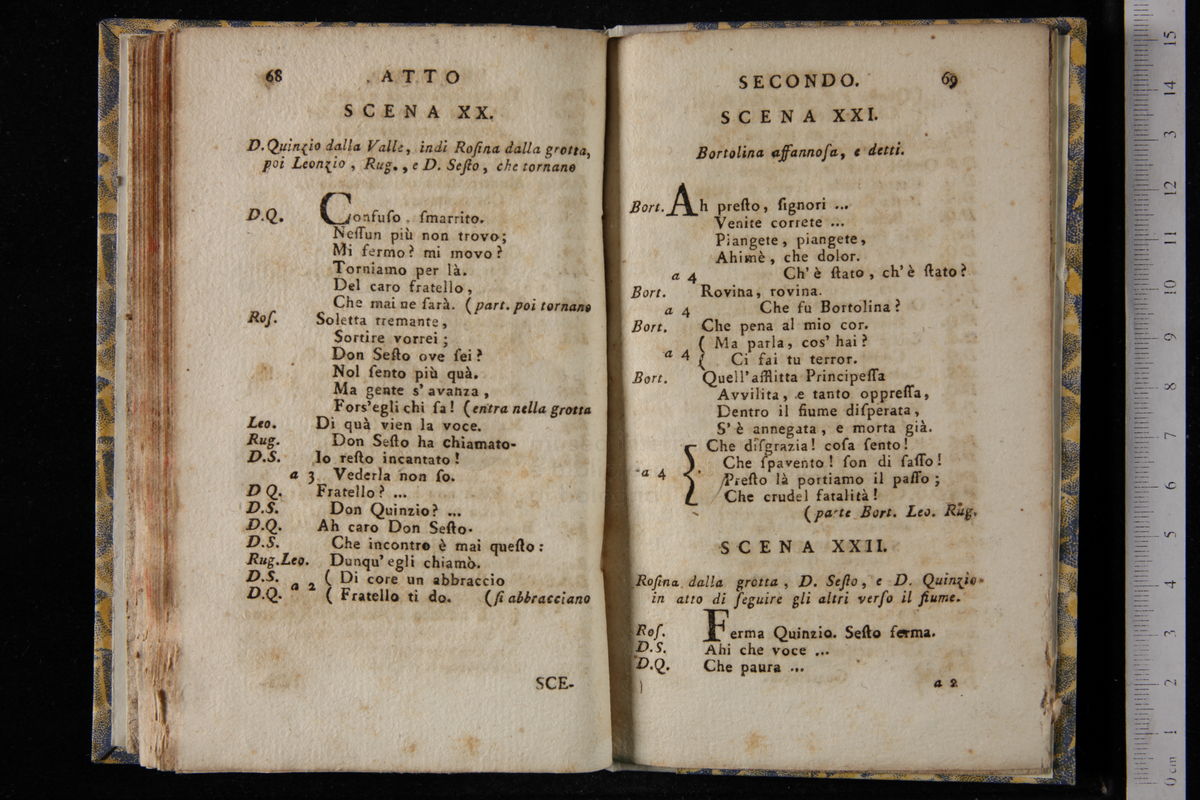 68 ATTO
SCENA XX.
D. Quinzio dalla Valle, indi Roſina dalla grotta,
poi Leonzio, Rug., e D. Seſto, che tornano
D.Q. Confuſo, ſmarrito.
Neſſun più non trovo;
Mi fermo? mi movo?
Torniamo per là.
Del caro fratello,
Che mai ne ſarà. (part. poi tornano
Roſ. Soletta tremante,
Sortire vorrei;
Don Seſto ove ſei?
Nol ſento più quà.
Ma gente s'avanza,
Fors'egli chi ſa! (entra nella grotta
Leo. Di quà vien la voce.
Rug. Don Seſto ha chiamato.
D.S. Io reſto incantato!
a 3 Vederla non ſo.
D Q. Fratello? ...
D.S. Don Quinzio? ...
D.Q. Ah caro Don Seſto.
D.S. Che incontro è mai queſto:
Rug.Leo. Dunqu'egli chiamò.
D.S. a 2 ( Di core un abbraccio
D.Q. ( Fratello ti do. (ſi abbracciano
SCE-
SECONDO. 69
SCENA XXI.
Bortolina affannoſa, e detti.
Bort. Ah preſto, ſignori ...
Venite correte ...
Piangete, piangete,
Ahimè, che dolor.
a 4 Ch'è ſtato, ch'è ſtato?
Bort. Rovina, rovina.
a 4 Che fù Bortolina?
Bort. Che pena al mio cor.
a 4 ( Ma parla, cos'hai?
( Ci fai tu terror.
Bort. Quell'afflitta Principeſſa
Avvilita, e tanto oppreſſa,
Dentro il fiume diſperata,
S'è annegata, e morta già.
Che diſgrazia! coſa ſento!
a 4 { Che ſpavento! ſon di ſaſſo!
Preſto là portiamo il paſſo;
Che crudel fatalità!
(parte Bort. Leo. Rug.
SCENA XXII.
Roſina dalla grotta, D. Seſto, e D. Quinzio
in atto di ſeguire gli altri verſo il fiume.
Roſ. Ferma Quinzio. Seſto ferma.
D.S. Ahi che voce ...
D.Q. Che paura ...
a 2